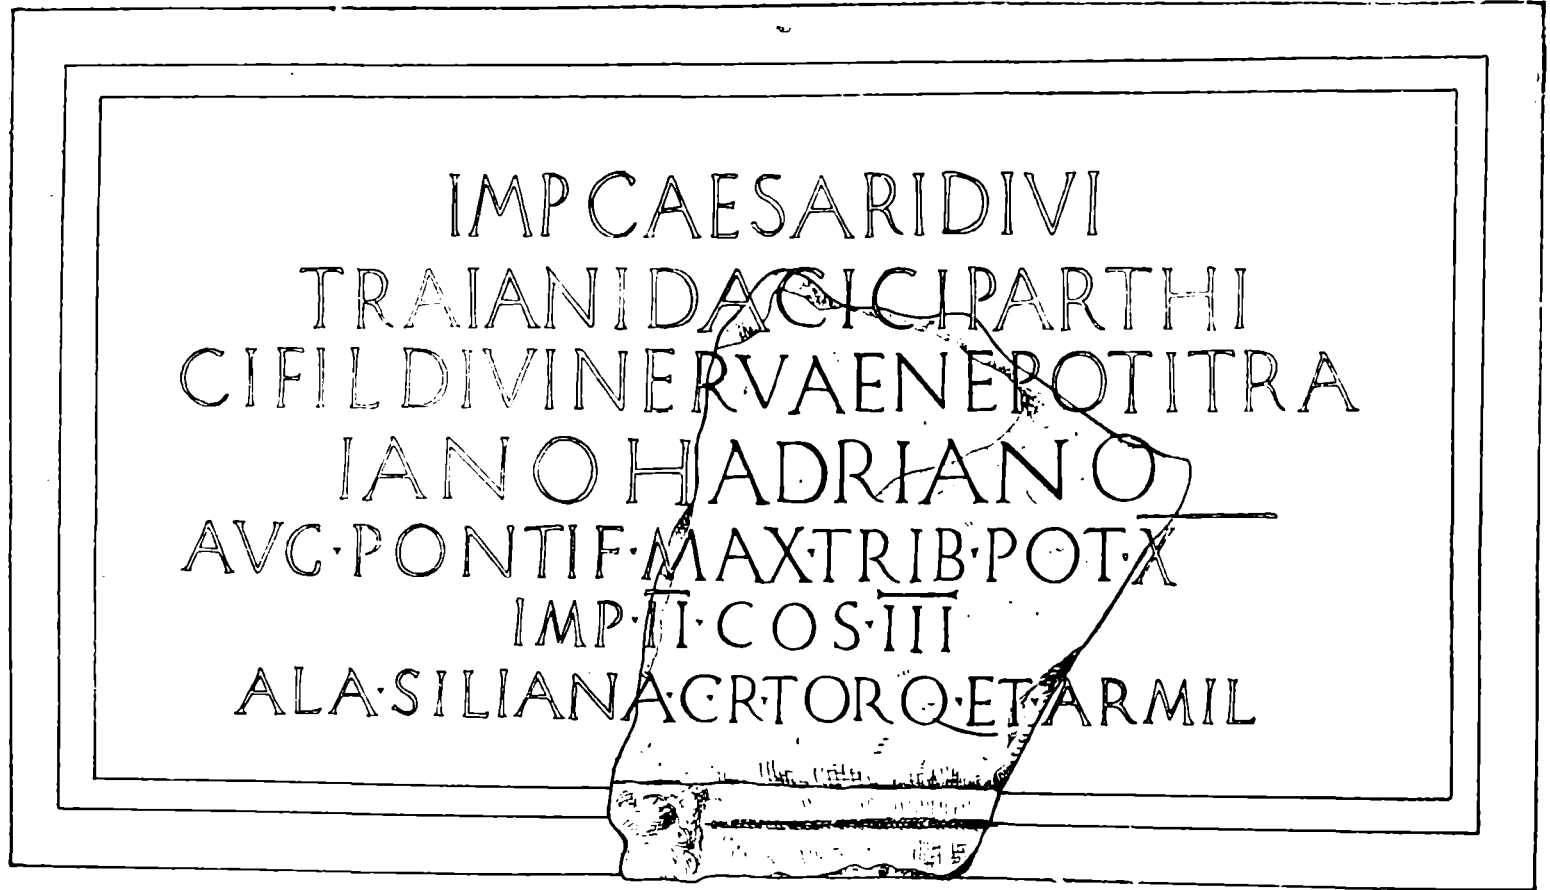 IMP CAESARI DIVI
TRAIANI DACICI PARTHI
CI FIL DIVI NERVAE NEPOTI TRA
IANO HADRIANO
AVG·PONTIF·MAX·TRIB·POT·X
IMP·II·COS·III
ALA·SILIANA·C·R·TORQ·ET·ARMIL